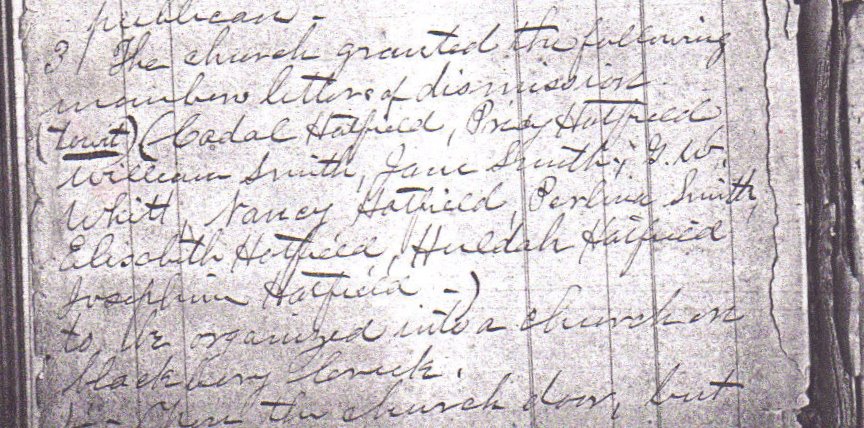 publican -
3 / The church granted the following
members letters of dismission
(towit) (Vadal Hatfield, Pricy Hatfield
William Smith, Jane Smith, G. W.
Whitt, Nancy Hatfield, Perlina Smith,
Elisebith Hatfield, Huldah Hatfield
Josephine Hatfield -)
to be organized into a church on
blackbery Creek.
the church door, but